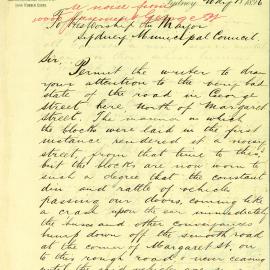 a noise from
wood
Sydney May 18 1896
To His Worship the Mayor
Sydney Municipal Council.
Sir,
Permit the writer to draw
your attention to the very bad
state of the road in George
Street here North of Margaret
Street. The manner in which
the blocks were laid in the first
instance rendered it a noisy
street, from that time to this,
but the blocks are now worn to
such a degree that the constant
din and rattle of vehicles
passing our doors, coming like
a crash upon the ear immediately
the buses and other conveyances
bump down off the smooth road
at the corner of Margaret St, on
to this rough road, & never ceasing
until the said vehicle